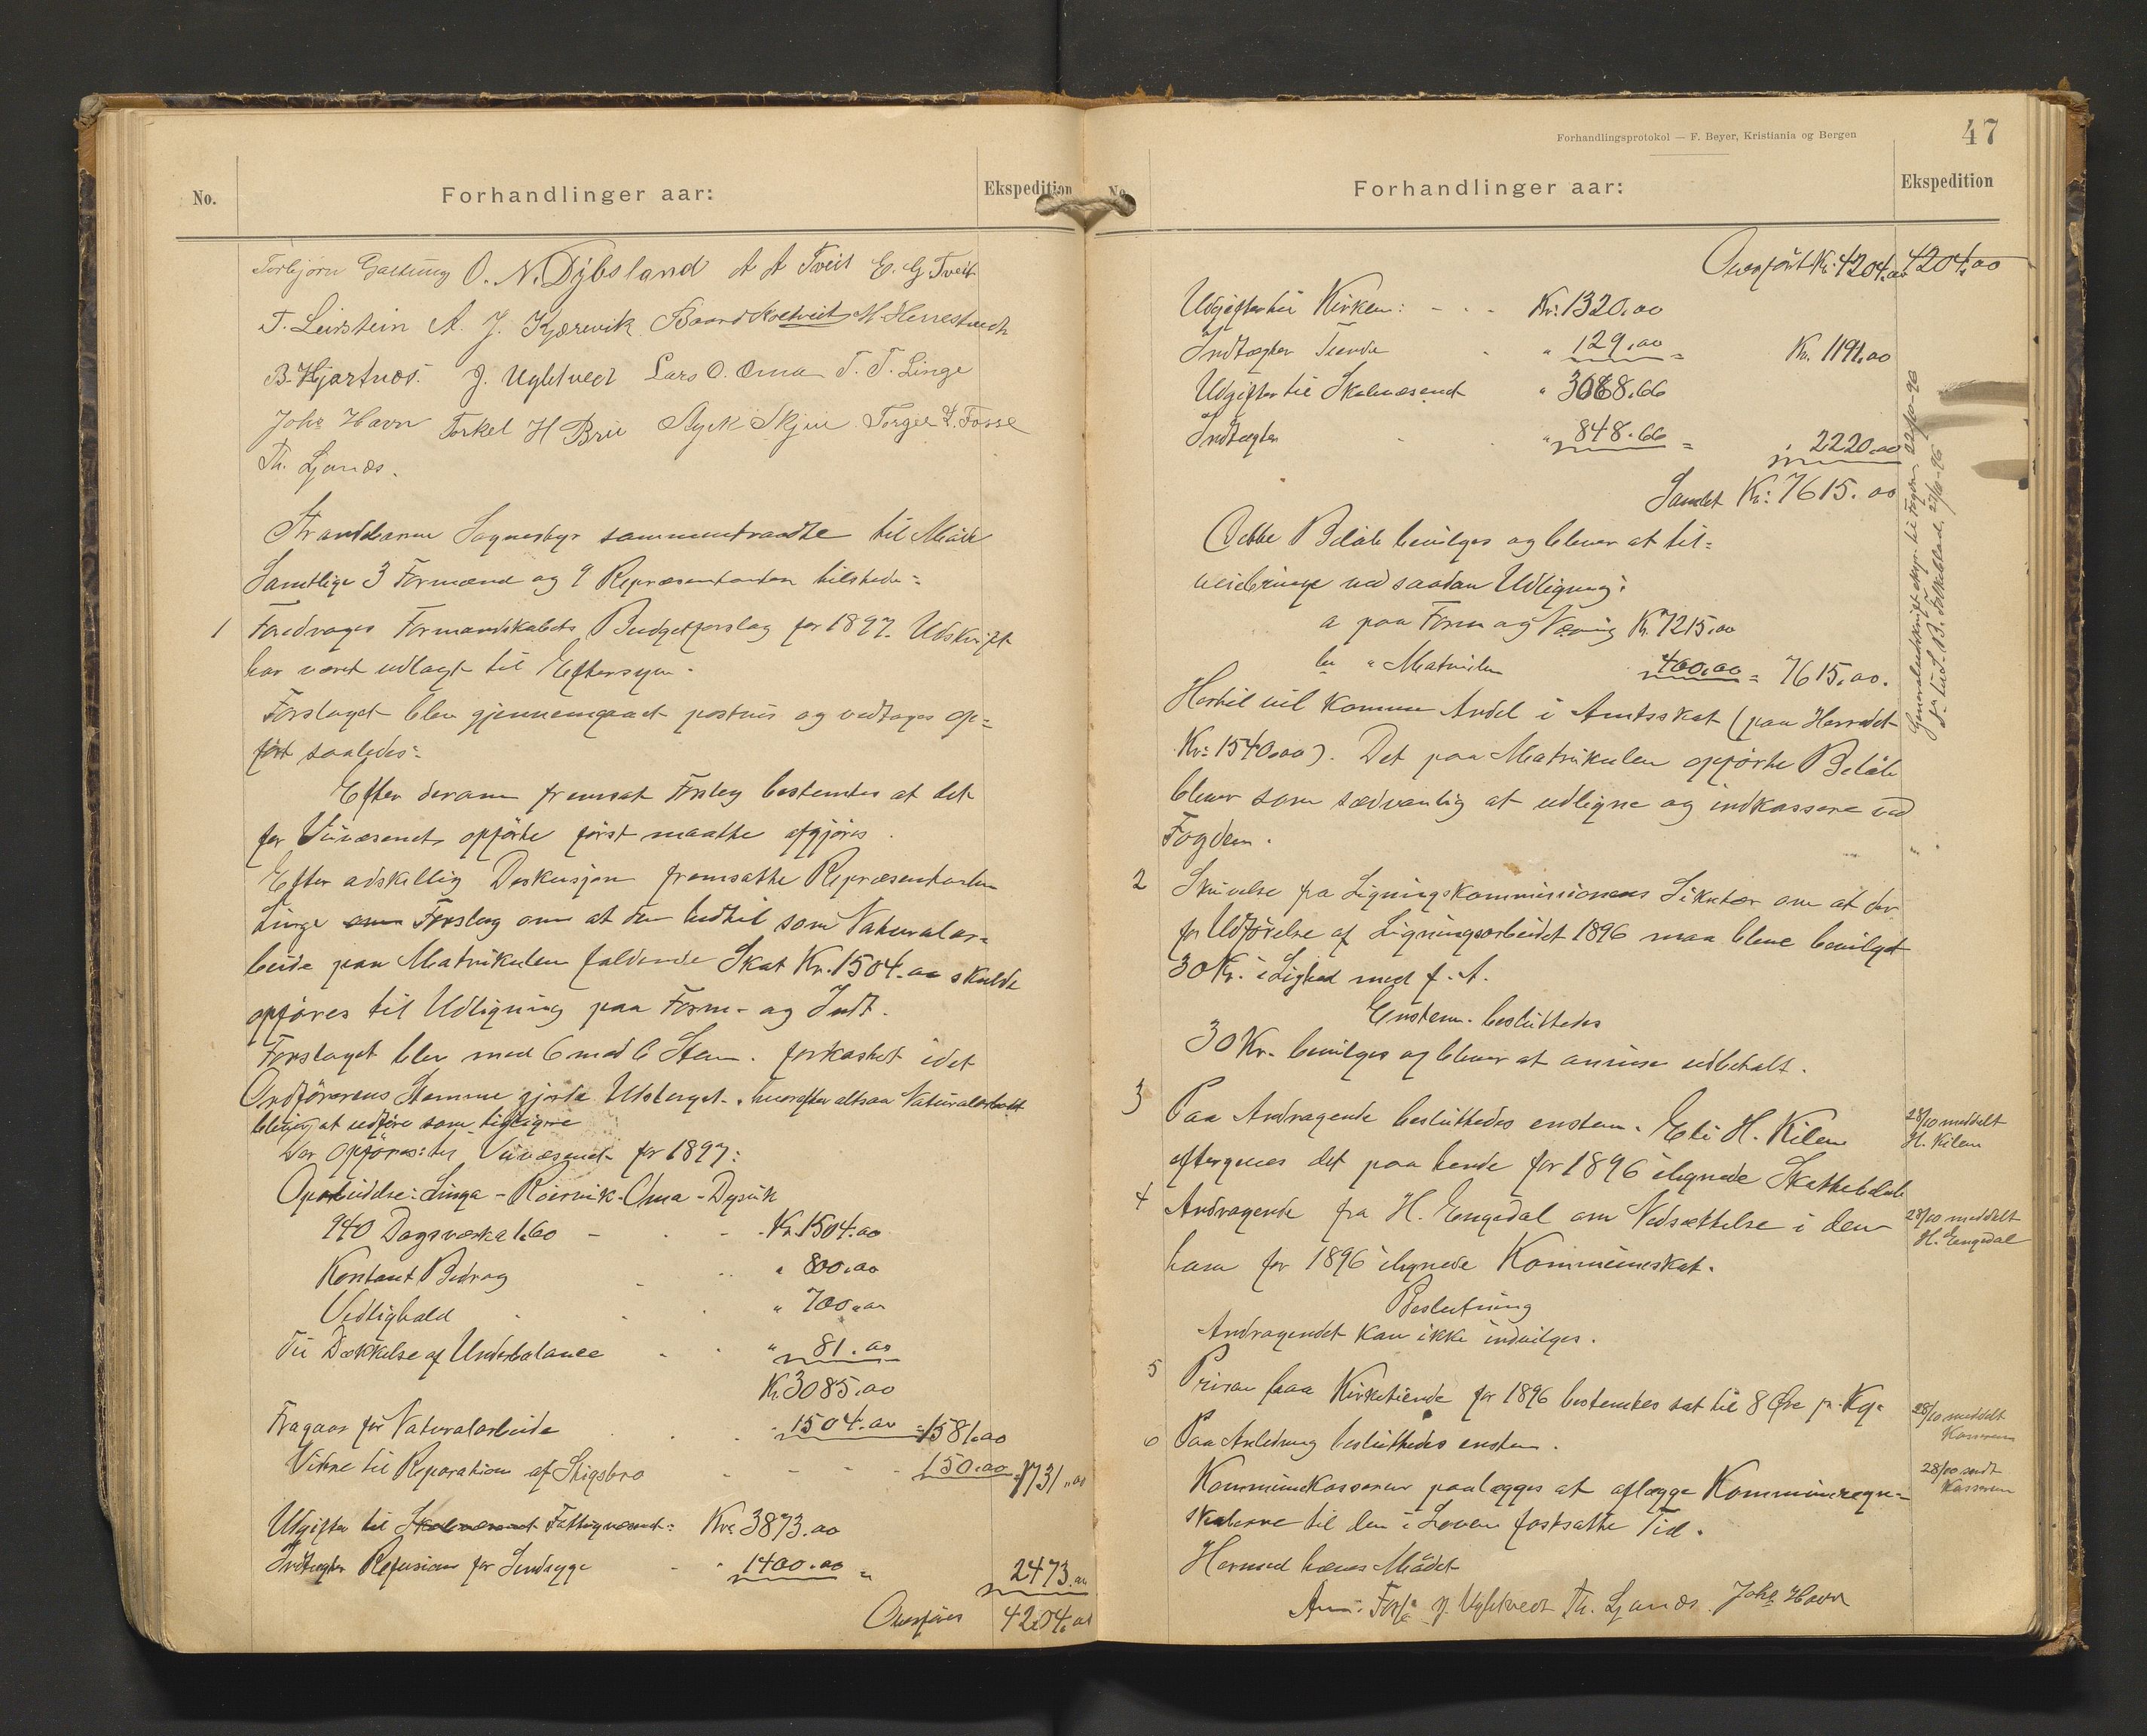 No.
Forhandlinger aar:
Ekspedition
Torbjørn Galtung O. N. Dybsland A A Tveit E. G Tveit
T. Leirstein A. J. Kjærevik Baard M Herrestvedt
B. Hjartnæs. J. Ugletvedt Lars O. Oma T. T. Linge
Johs Havn Torkel H Bru Skjie Torgils T. Fosse
Th. Ljonæs.
Strandebarm Sognestyr sammentraadte til Møde
Samtlige 3 Formænd og 9 Repræsentanter tilstede:
1 Foredroges Formandskabets Budgetforslag for 1897. Udskrift
har været udlagt til Eftersyn.
Forslaget blev gjennemgaaet postvis og vedtages op=
ført saaledes:
Efter derom fremsat Forslag bestemtes at det
for Veivæsenet opførte først maatte afgjøres.
Efter adskillig Deskusjon fremsatte Repræsentanten
Linge Forslag om at den hidtil som Naturalar=
beide paa Matrikulen faldende Skat Kr. 1504.00 skulde
opføres til Udligning paa Form- og Indt.
Forslaget blev med 6 mod 6 Stem. forkastet idet
Ordførerens Stemme gjorde Udslaget. hvorefter altsaa Naturalarbeidet
bliver at udføre som tidligere
Der opføres til Veivæsenet for 1897:
Oparbeidelse: Linga - Røirvik - Oma - Dysvik
940 Dagsværk a 1.60 - - Kr. 1504.00
Kontant Bidrag " 800.00
Vedlighold " 700.00
Til Dækkelse af Underbalance " 81.00
Kr. 3085.00
Fragaar for Naturalarbeide 1504.00 = 1581.00
Videre til Reparation af Skigsbro 150.00 = 1731.00
Udgifter til Fattigvæsenet: Kr. 3873.00
Indtægter Refusion for Sindsyge " 1400.00 = 2473.00
Overføres 4204.00
Forhandlingsprotokol — F. Beyer, Kristiania og Bergen
47
No.
Forhandlinger aar:
Ekspedition
Overført Kr. 4204.00 4204.00
Udgifter til Kirken: - - Kr. 1320.00
Indtægter Tiende " 129.00 = Kr. 1191.00
Udgifter til Skolevæsenet " 3068.66
Indtægter " 848.66 = " 2220.00
Samlet Kr. 7615.00
Dette Beløb bevilges og bliver at til=
veiebringe ved saadan Udligning:
a paa Form og Næring Kr. 7215.00
b " Matrikulen 400.00 = 7615.00.
Hertil vil komme Andel i Amtsskat (paa Herredet
Kr. 1540.00). Det paa Matrikulen opførte Beløb
bliver som sædvanlig at udligne og indkassere ved
Fogden.
Generaludskrift expr. til Fogden 22/10-96
do til S. B. Folkeblad. 27/10-96
2 Skrivelse fra Ligningskommissionens Sekretær om at der
for Udførelse af Ligningsarbeidet 1896 maa blive bevilget
30 Kr. i Lighed med f. A.
Enstem. besluttedes
30 Kr. bevilges og bliver at anvise udbetalt.
3 Paa Andragende besluttedes enstem. Eli H. Kilen
eftergives det paa hende for 1896 ilignede Skattebeløb
28/10 meddelt
H. Kilen
4 Andragende fra H. Engedal om Nedsættelse i den
ham for 1896 ilignede Kommuneskat.
28/10 meddelt
H. Engedal
Beslutning
Andragendet kan ikke indvilges.
5 Prisen paa Kirketiende for 1896 bestemtes sat til 8 Øre pr. Kg.
28/10 meddelt
Kasserer
6 Paa Anledning besluttedes enstem.
Kommunekassereren paalægges at aflægge Kommuneregn=
skaberne til den i Loven fastsatte Tid.
28/10 sendt
Kasserer
Hermed hæves Mødet
J. Ugletvedt Th. Ljonæs Johs Havn